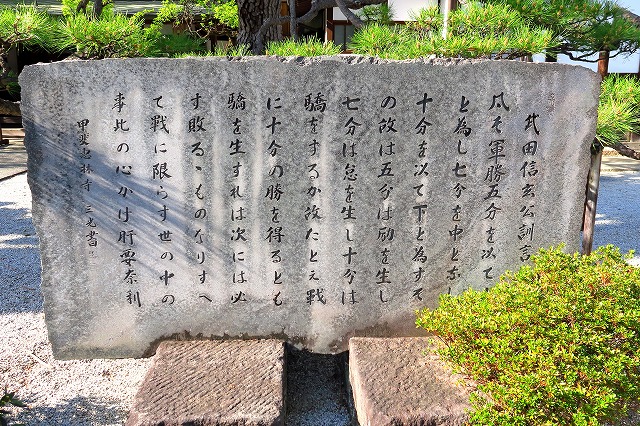 武田信玄公訓言
凡そ軍勝五分を以て
と為し七分を中と為し
十分を以て下と為すそ
の故は五分は励を生し
七分は怠を生し十分は
驕をするか故たとえ戦
に十分の勝を得るとも
驕を生すれは次には必
す敗るゝものなりすへ
て戦に限らす世の中の
事比の心かけ肝要奈利
甲斐恵林寺 三光書